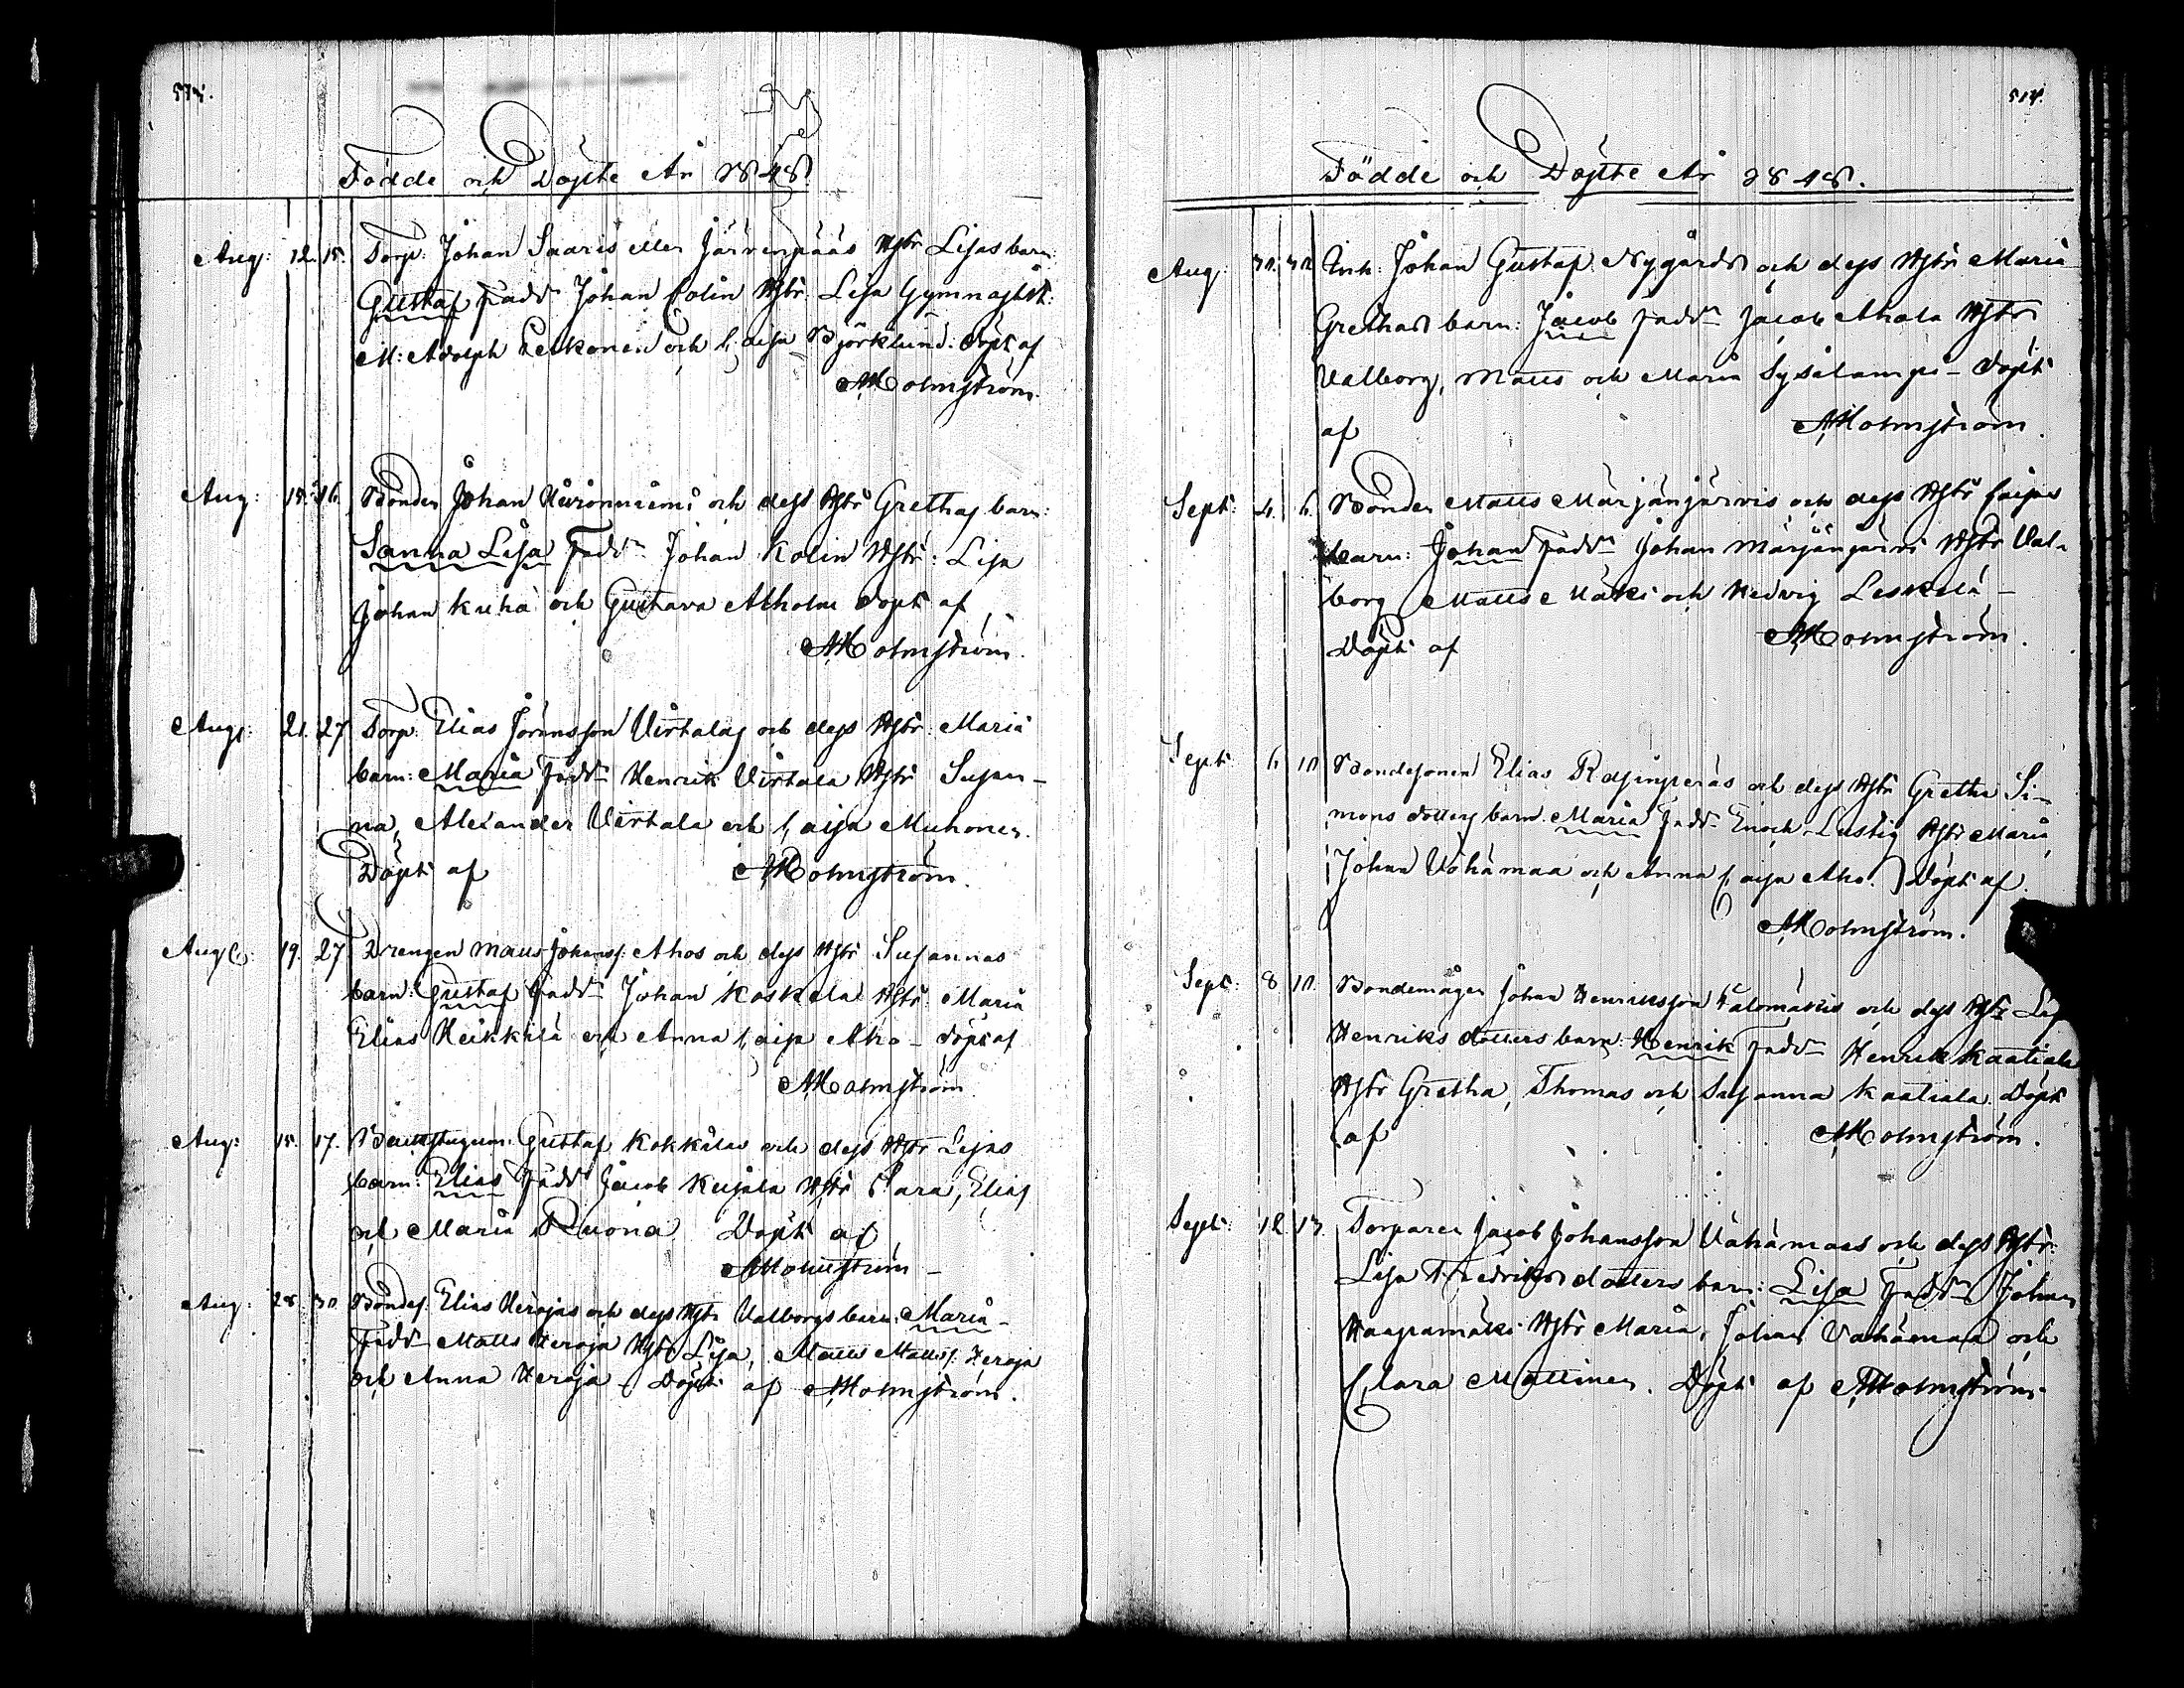 Födde och Döpte År 1848.
Aug: 12. 15. Torp: Johan Saaris eller Järvenpääs Hstr Lisas barn:
Gustaf Fadd: Johan Colin Hstr: Lisa Gymnasist:
M: Adolph och Caisa Björklund. Döpt af
AHolmström.
Aug: 15. 16. Bonden Johan och dess Hstr Grethas barn:
Sanna Lisa Fadd: Johan Kolin Hstr: Lisa
Johan Kuha och Gustava Alholm Döpt af
AHolmström.
Aug: 21. 27 Torp: Elias Jöransson Virtalas och dess Hstr: Maria
barn: Maria Fadd: Henrik Virtala Hstr Susan-
na, Alexander Virtala och Caisa Muhonen.
Döpt af AHolmström.
Aug: 19. 27 Drengen Matts Johanss: Ahos och dess Hstr Susannas
barn: Gustaf Fadd: Johan Koskela Hstr: Maria
Elias Heikkilä och Anna Caisa Aho - Döpt af
AHolmström
Aug: 15. 17. Gustaf Kokkilas och dess Hstr Lisas
barn: Elias Fadd: Jacob Kujala Hstr Sara, Elias
och Maria Ruona Döpt af
AHolmström -
Aug: 28. 30 Bondes: Elias Herojas och dess Hstr Valborgs barn: Maria -
Fadd: Matts Heroja Hstr Lisa, Matts Matts: Heroja
och Anna Heroja - Döpt af AHolmström.
514.
Födde och Döpte År 1848.
Aug: 30. 30 Inh: Johan Gustaf Nygårds och dess Hstr Maria
Grethas barn: Jacob Fadd: Jacob Ahola Hstr
Valborg, Matts och Maria Sysilampi - Döpt
af AHolmström.
Sept: 4. 6. Bonden Matts Märjänjärvis och dess Hstr Caisas
barn: Johan Fadd: Johan Märjänjärvi Hstr Val-
borg Matts Mäki och Hedvig Leskelä -
Döpt af AHolmström.
Sept: 6 10 Bondesonen Elias och dess Hstr Gretha Si-
mons dotters barn: Maria Fadd: Enoch Lustig Hstr Maria,
Johan Vähämaa och Anna Caisa Aho. Döpt af
AHolmström.
Sept: 8 10. Bondemågen Johan Henriksson och dess Hstr
Henriks dotters barn: Henrik Fadd: Henrik Kaatiala
Hstr Gretha, Thomas och Susanna Kaatiala Döpt
af AHolmström.
Sept: 12 13. Torparen Jacob Johansson Vähämaas och dess Hstr:
Lisa Fredriks dotters barn: Lisa Fadd: Johan
Haapamäki Hstr Maria, Johan Vähämaa och
Clara Mattinen. Döpt af AHolmström.